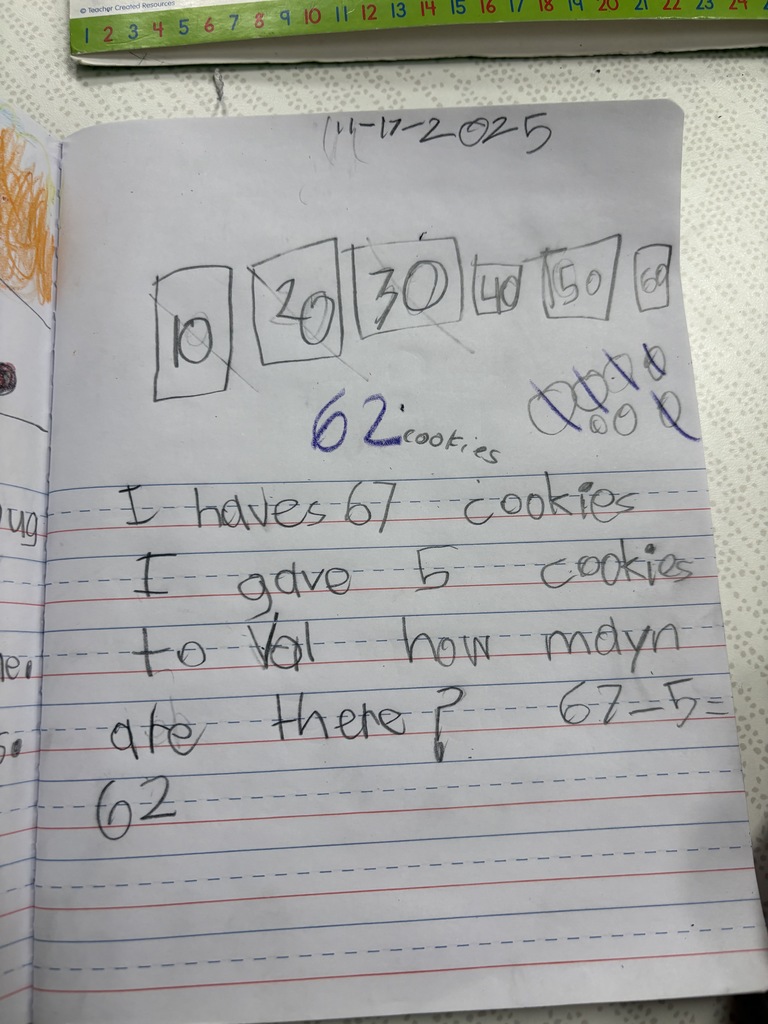 © Teacher Created Resources
1 2 3 4 5 6 7 8 9 10 11 12 13 14 15 16 17 18 19 20 21 22 23 24
11-17-2025
10 20 30 40 50 60
62 cookies
I haves 67 cookies
I gave 5 cookies
to Val how mayn
are there? 67-5=
62
ug